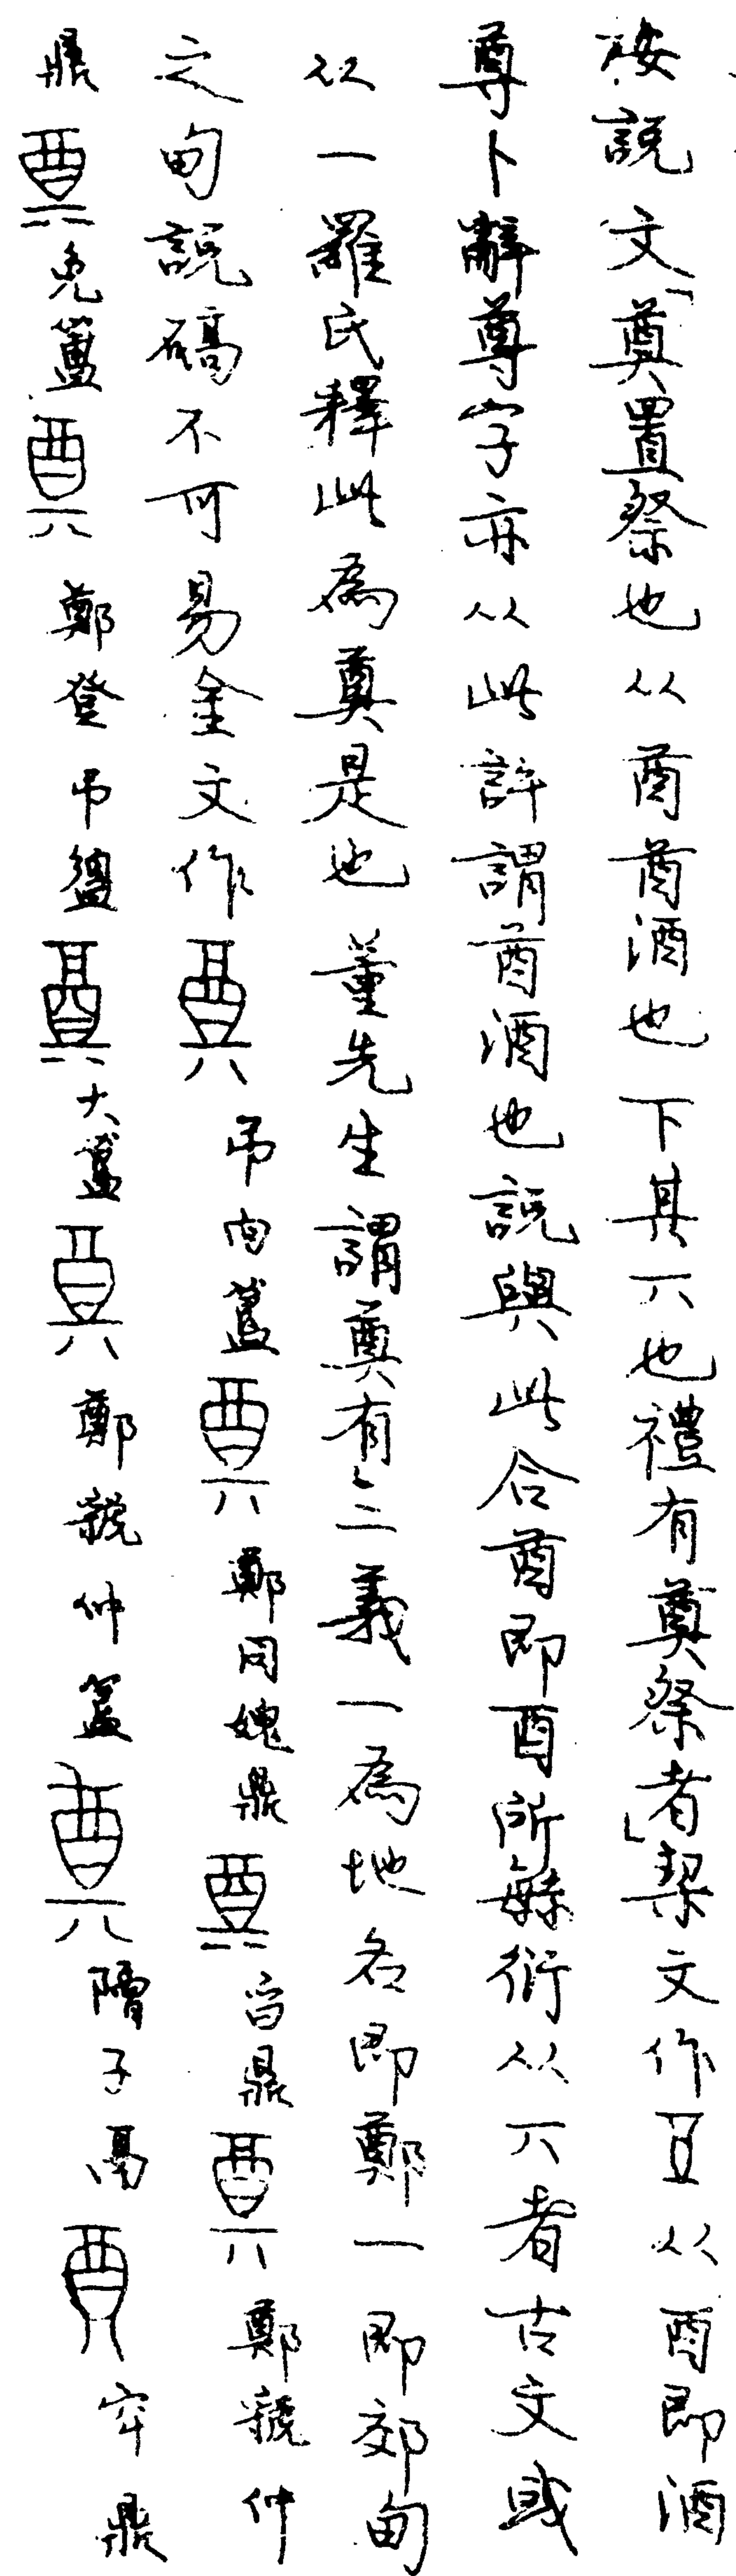 按說文「奠置祭也从酋酋酒也下其丌也禮有奠祭者」栔文作从酉即酒
尊卜辭尊字亦从此許謂酋酒也說與此合酋即酉所孳衍从丌者古文或
从一羅氏釋此為奠是也董先生謂奠有二義一為地名即鄭一即郊甸
之甸說碻不可易金文作弔向簋鄭同媿鼎曶鼎鄭虢仲
鼎免簠鄭登弔盨大簋鄭虢仲簋子鬲鼎